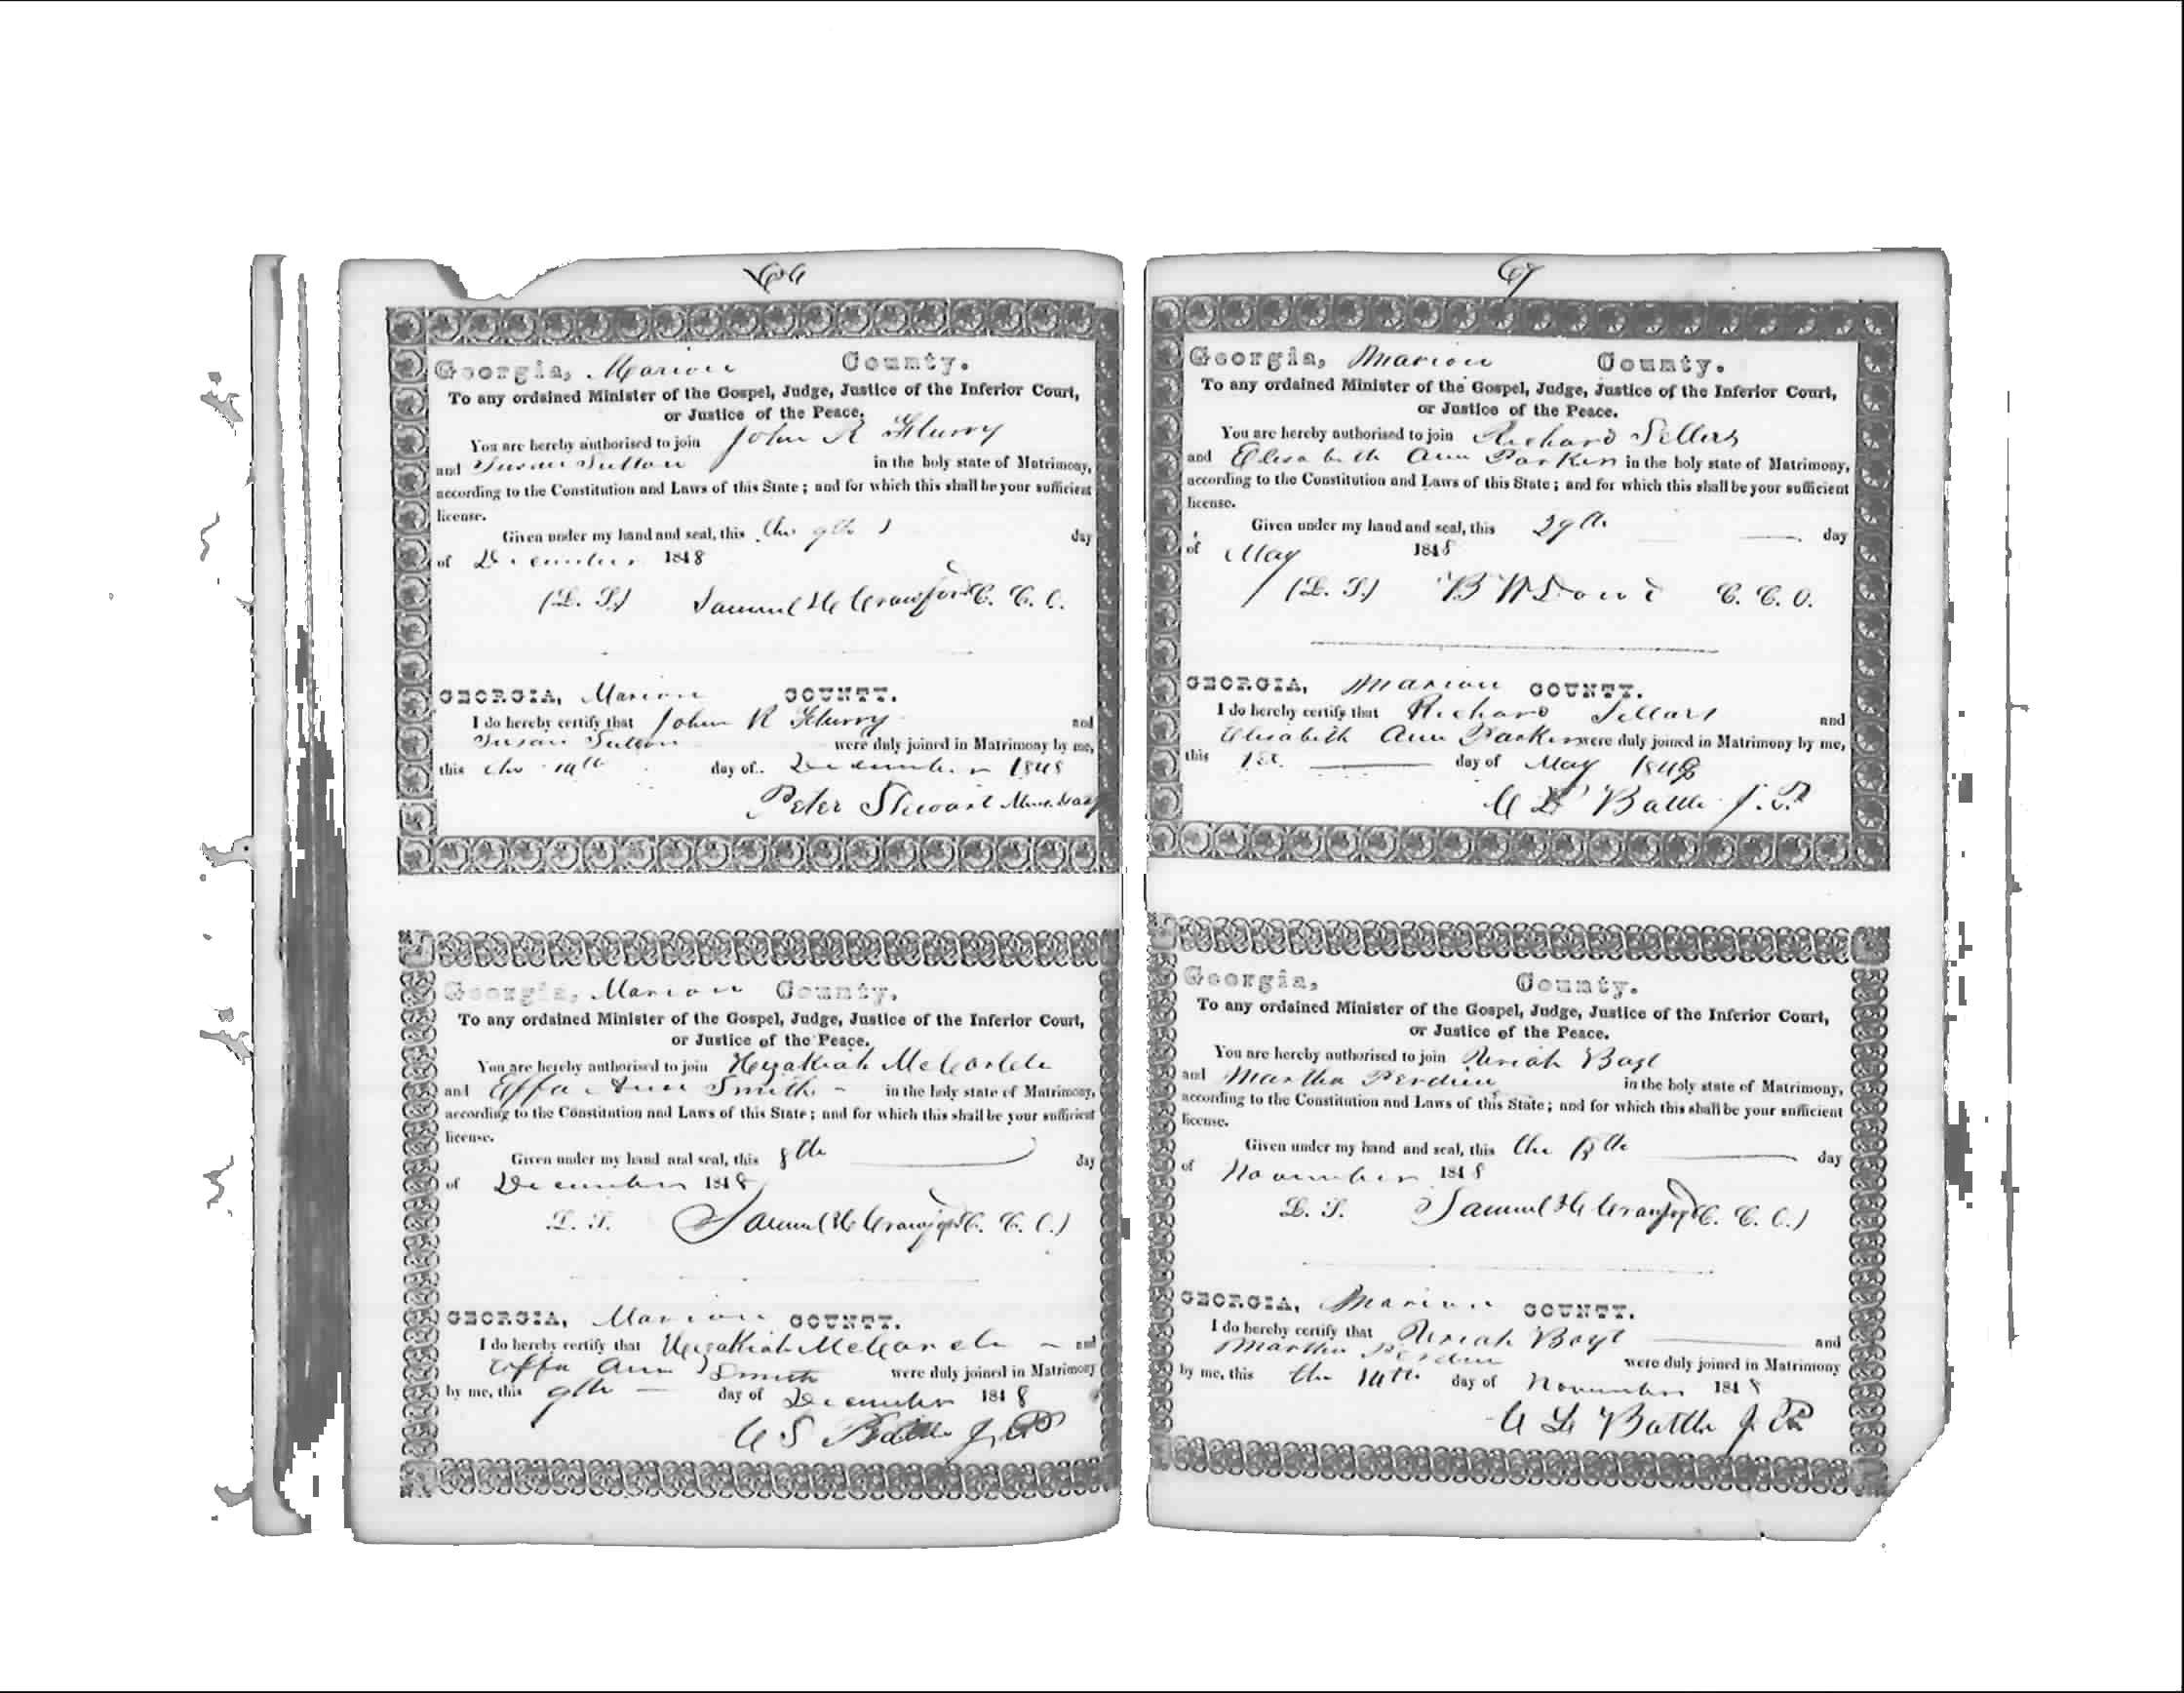 66
Georgia, Marion County.
To any ordained Minister of the Gospel, Judge, Justice of the Inferior Court,
or Justice of the Peace.
You are hereby authorised to join John R Flurry
and Susan Sutton in the holy state of Matrimony,
according to the Constitution and Laws of this State; and for which this shall be your sufficient
license.
Given under my hand and seal, this the 9th day
of December 1848
(L. S.) Samuel H Crawford C. C. C.
GEORGIA, Marion COUNTY.
I do hereby certify that John R Flurry and
Susan Sutton were duly joined in Matrimony by me,
this the day of December 1848
Peter Stewart
Georgia, Marion County.
To any ordained Minister of the Gospel, Judge, Justice of the Inferior Court,
or Justice of the Peace.
You are hereby authorised to join
and Effa Ann Smith in the holy state of Matrimony,
according to the Constitution and Laws of this State; and for which this shall be your sufficient
license.
Given under my hand and seal, this 8th day
of December 1848
L. S. Samuel H Crawford C. C. C.)
GEORGIA, Marion COUNTY.
I do hereby certify that and
Effa Ann Smith were duly joined in Matrimony
by me, this 9th day of December 1848
Battle J. P
67
Georgia, Marion County.
To any ordained Minister of the Gospel, Judge, Justice of the Inferior Court,
or Justice of the Peace.
You are hereby authorised to join Richard Sellers
and Elisabeth Ann Parker in the holy state of Matrimony,
according to the Constitution and Laws of this State; and for which this shall be your sufficient
license.
Given under my hand and seal, this 29th day
of May 1848
(L. S.) C. C. O.
GEORGIA, Marion COUNTY.
I do hereby certify that Richard Sellars and
Elisabeth Ann Parker were duly joined in Matrimony by me,
this 1st day of May 1848
Battle J. P
Georgia, County.
To any ordained Minister of the Gospel, Judge, Justice of the Inferior Court,
or Justice of the Peace.
You are hereby authorised to join Uriah
and Martha Perdue in the holy state of Matrimony,
according to the Constitution and Laws of this State; and for which this shall be your sufficient
license.
Given under my hand and seal, this the day
of November 1848
L. S. Samuel H Crawford C. C. C.)
GEORGIA, Marion COUNTY.
I do hereby certify that Uriah and
Martha Perdue were duly joined in Matrimony
by me, this the 14th day of November 1848
Battle J. P